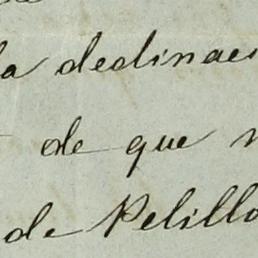 la declinaci
de que n
de Pelillo